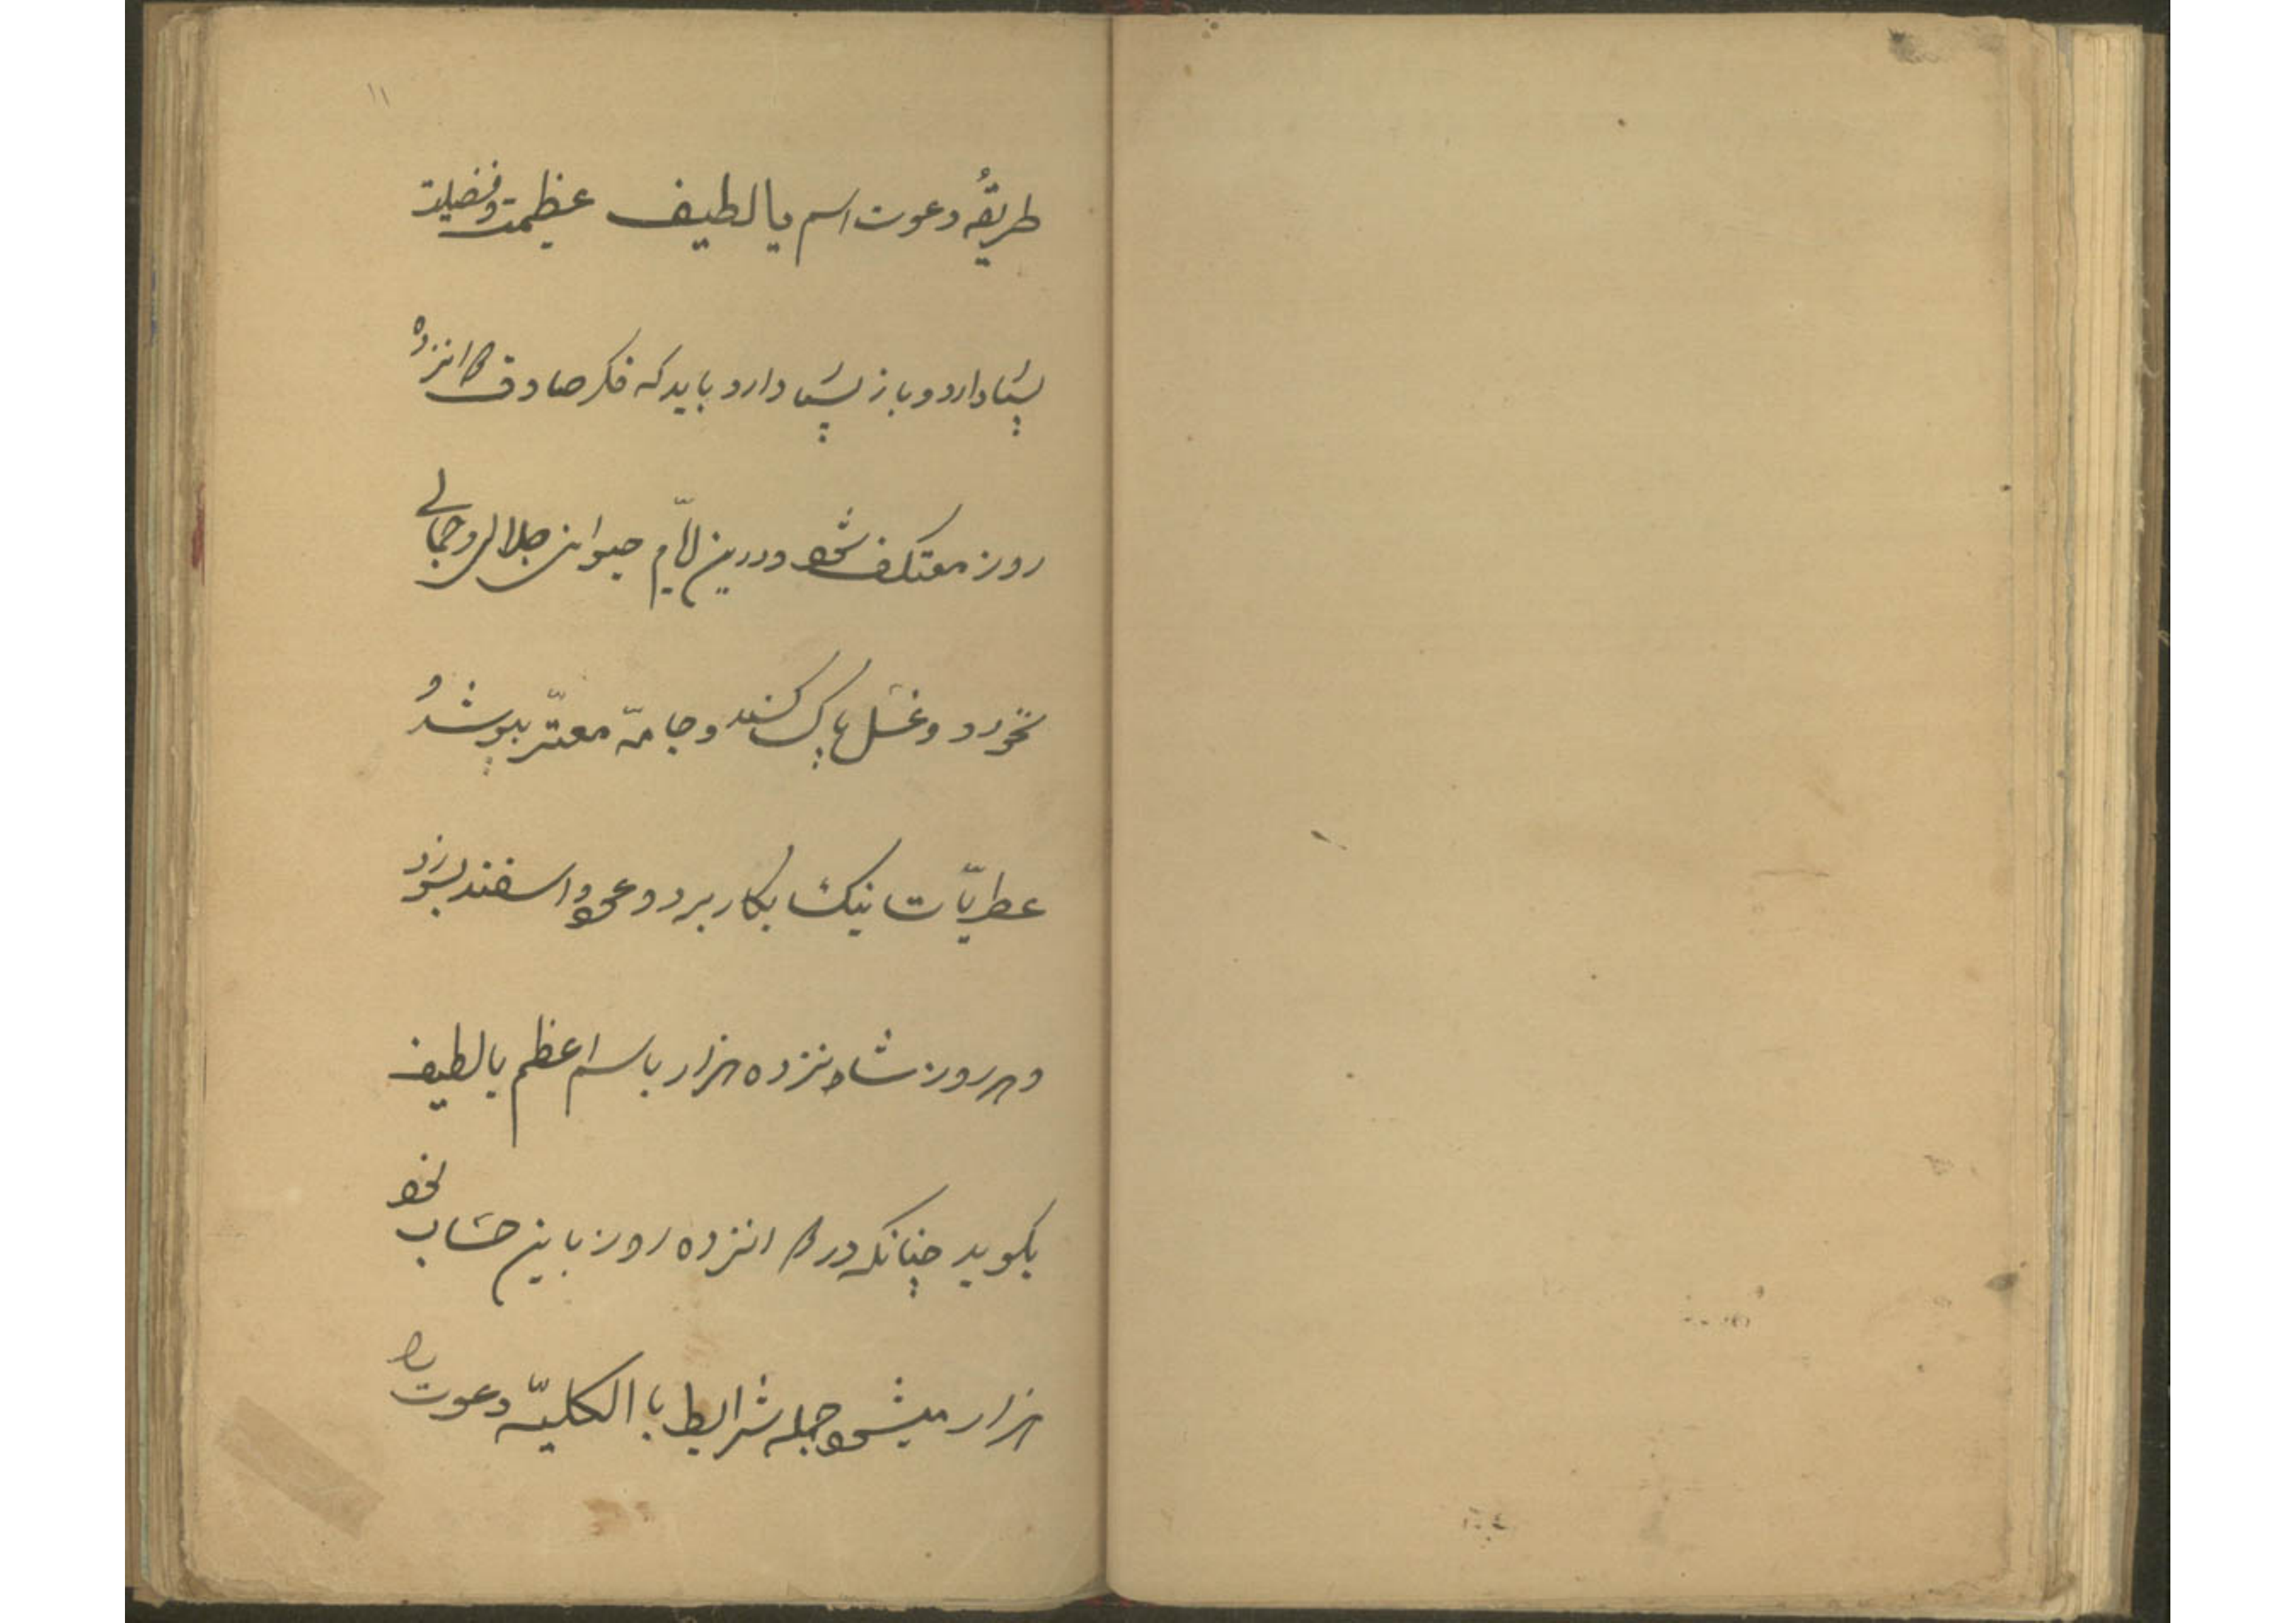 ۱۱
طریقهُ دعوت اسم یا لطیف عظیمت و فضیلت
بسیار دارد باید که فکر صادق پانزده
روز معتکف شود و درین ایّام حیوانی جلالی و جمالی
نخورد و غسل پاک کند و جامهّ معتّر بپوشد و
عطریّات نیک بکار برد و عود و اسفند بسوزد
و هر روز شانزده هزار با اسم اعظم یا لطیف
بگوید چنانکه در پانزده روز باین حساب
هزار میشود جمله شرایط با الکلیّه دعوت را